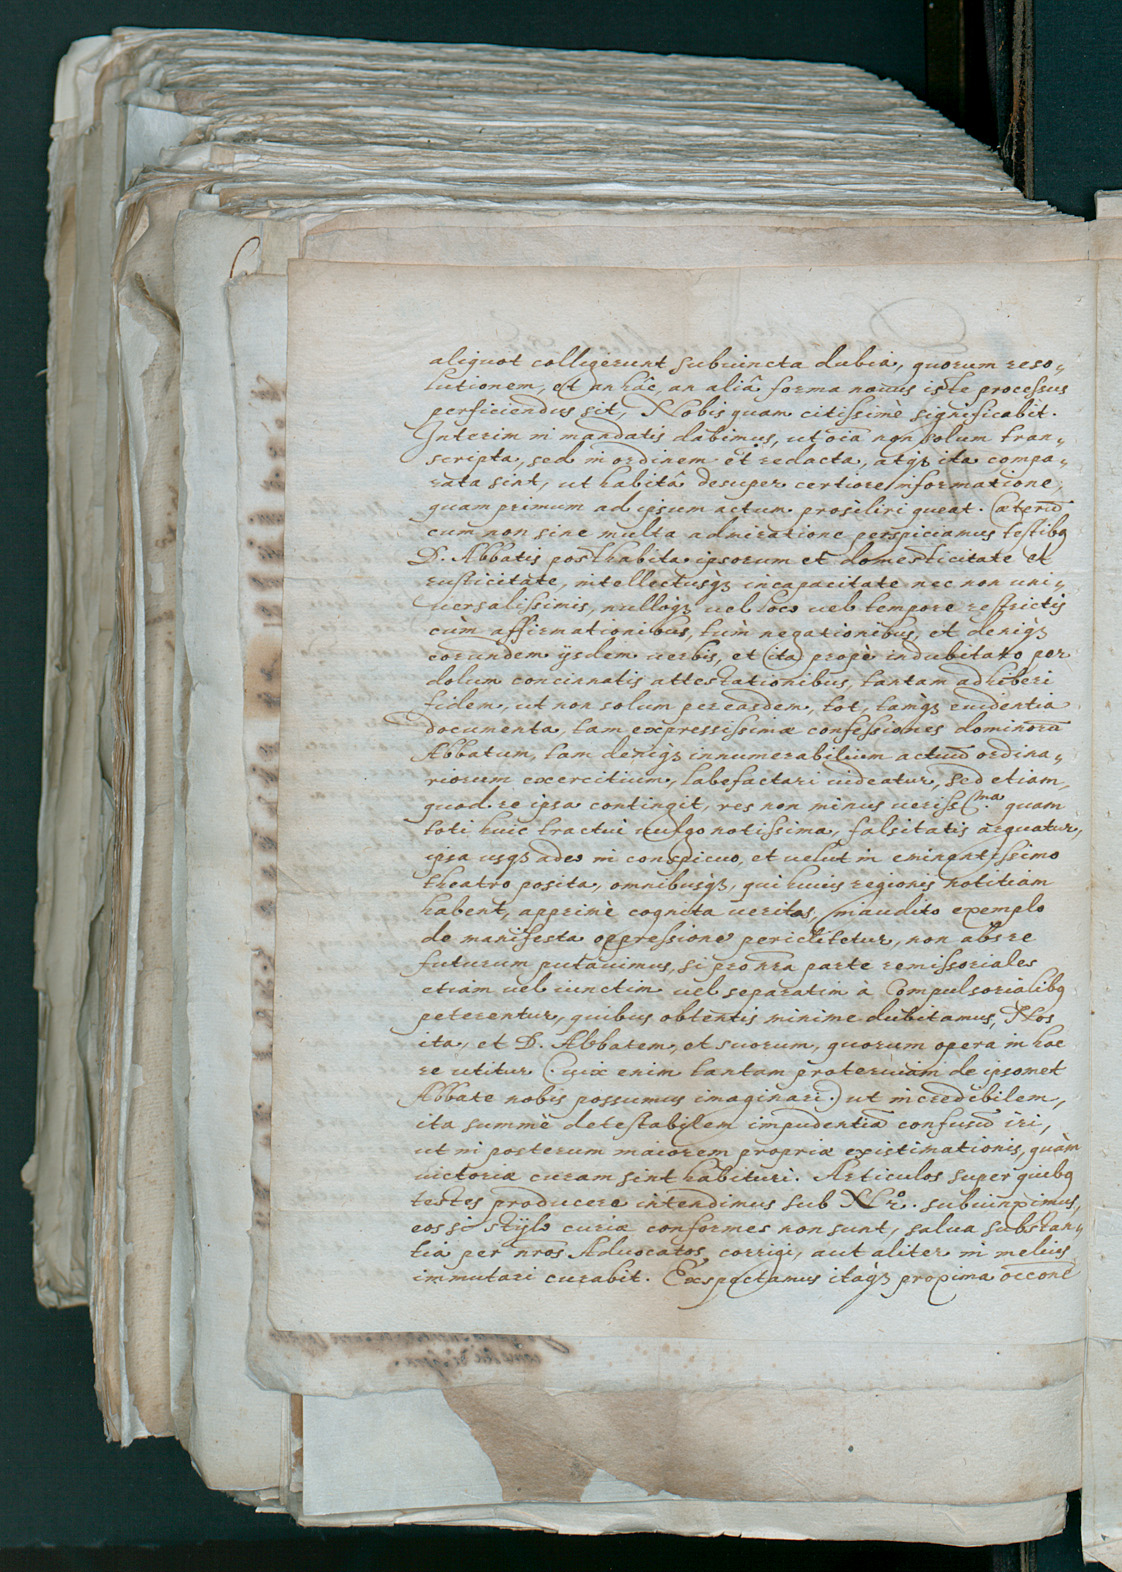 aliquot colligerunt subiuncta dubia, quorum reso„
lutionem, et an hâc, an aliâ forma nouus iste processus
perficiendus sit, Nobis quam citissimè significabit.
Interim in mandatis dabimus, ut oīa non solum tran„
scripta, sed in ordinem et redacta, atqꝫ ita compa„
rata sint, ut habita desuper certiore informatione,
quam primum ad ipsum actum prosiliri queat. Cæterū
cum non sine multa admiratione perspiciamus testibꝰ
D. Abbatis posthabita ipsorum et domesticitate et
rusticitate, intellectusqꝫ incapacitate nec non uni„
uersalissimis, nulloqꝫ uel loco uel tempore restrictis
cùm affirmationibus, tùm negationibus, et deniqꝫ
eorundem ijsdem uerbis, et (ita) propè indubitato per
dolum concinnatis attestationibus, tantam adhiberi
fidem, ut non solum per easdem, tot, tamqꝫ euidentia
documenta, tam expressissimæ confessiones dominorū
Abbatum, tam deniqꝫ innumerabilium actuū ordina„
riorum exercitium, labefactari uideatur, sed etiam,
quod re ipsa contingit, res non minus ueriss.ma quam
toti huic tractui uulgo notissima, falsitatis arguatur,
ipsa usqꝫ adeo in conspicuo, et uelut in eminentissimo
theatro posita, omnibusqꝫ, qui huius regionis notitiam
habent, apprimè cognita ueritas, inaudito exemplo
de manifesta oppressione periclitetur, non abs re
futurum putauimus, si pro nrā parte remissoriales
etiam uel iunctim uel separatim à Compulsorialibꝰ
peterentur, quibus obtentis minime dubitamus, Nos
ita, et D. Abbatem, et suorum, quorum opera in hac
re utitur (: uix enim tantam proteruiam de ipsomet
Abbate nobis possumus imaginari :) ut incredibilem,
ita summè detestabilem impudentiā confusū iri,
ut in posterum maiorem propriæ existimationis, quàm
uictoriæ curam sint habituri. Articulos super quibꝰ
testes producere intendimus sub N.º 2.º subiunximus,
eos si stylo curiæ conformes non sunt, salua substan„
tia per nrōs Aduocatos corrigi, aut aliter in melius
immutari curabit. Exspectamus itaqꝫ proxima occōne